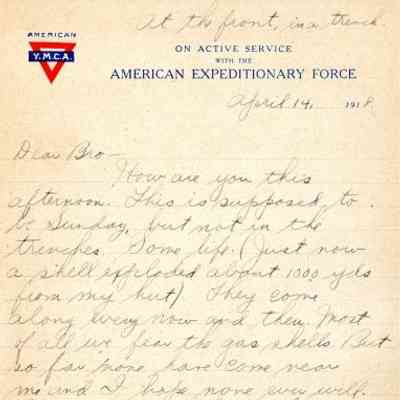 At the front, in a trench.
AMERICAN
Y.M.C.A.
ON ACTIVE SERVICE
WITH THE
AMERICAN EXPEDITIONARY FORCE
April 14, 1918
Dear Bro-
How are you this
afternoon. This is supposed to
be Sunday, but not in the
trenches. Some life. (Just now
a shell exploded about 1000 yds
from my hut). They come
along every now and then. Most
of all we fear the gas shells. But
so far none have come near
me and I hope none ever will.